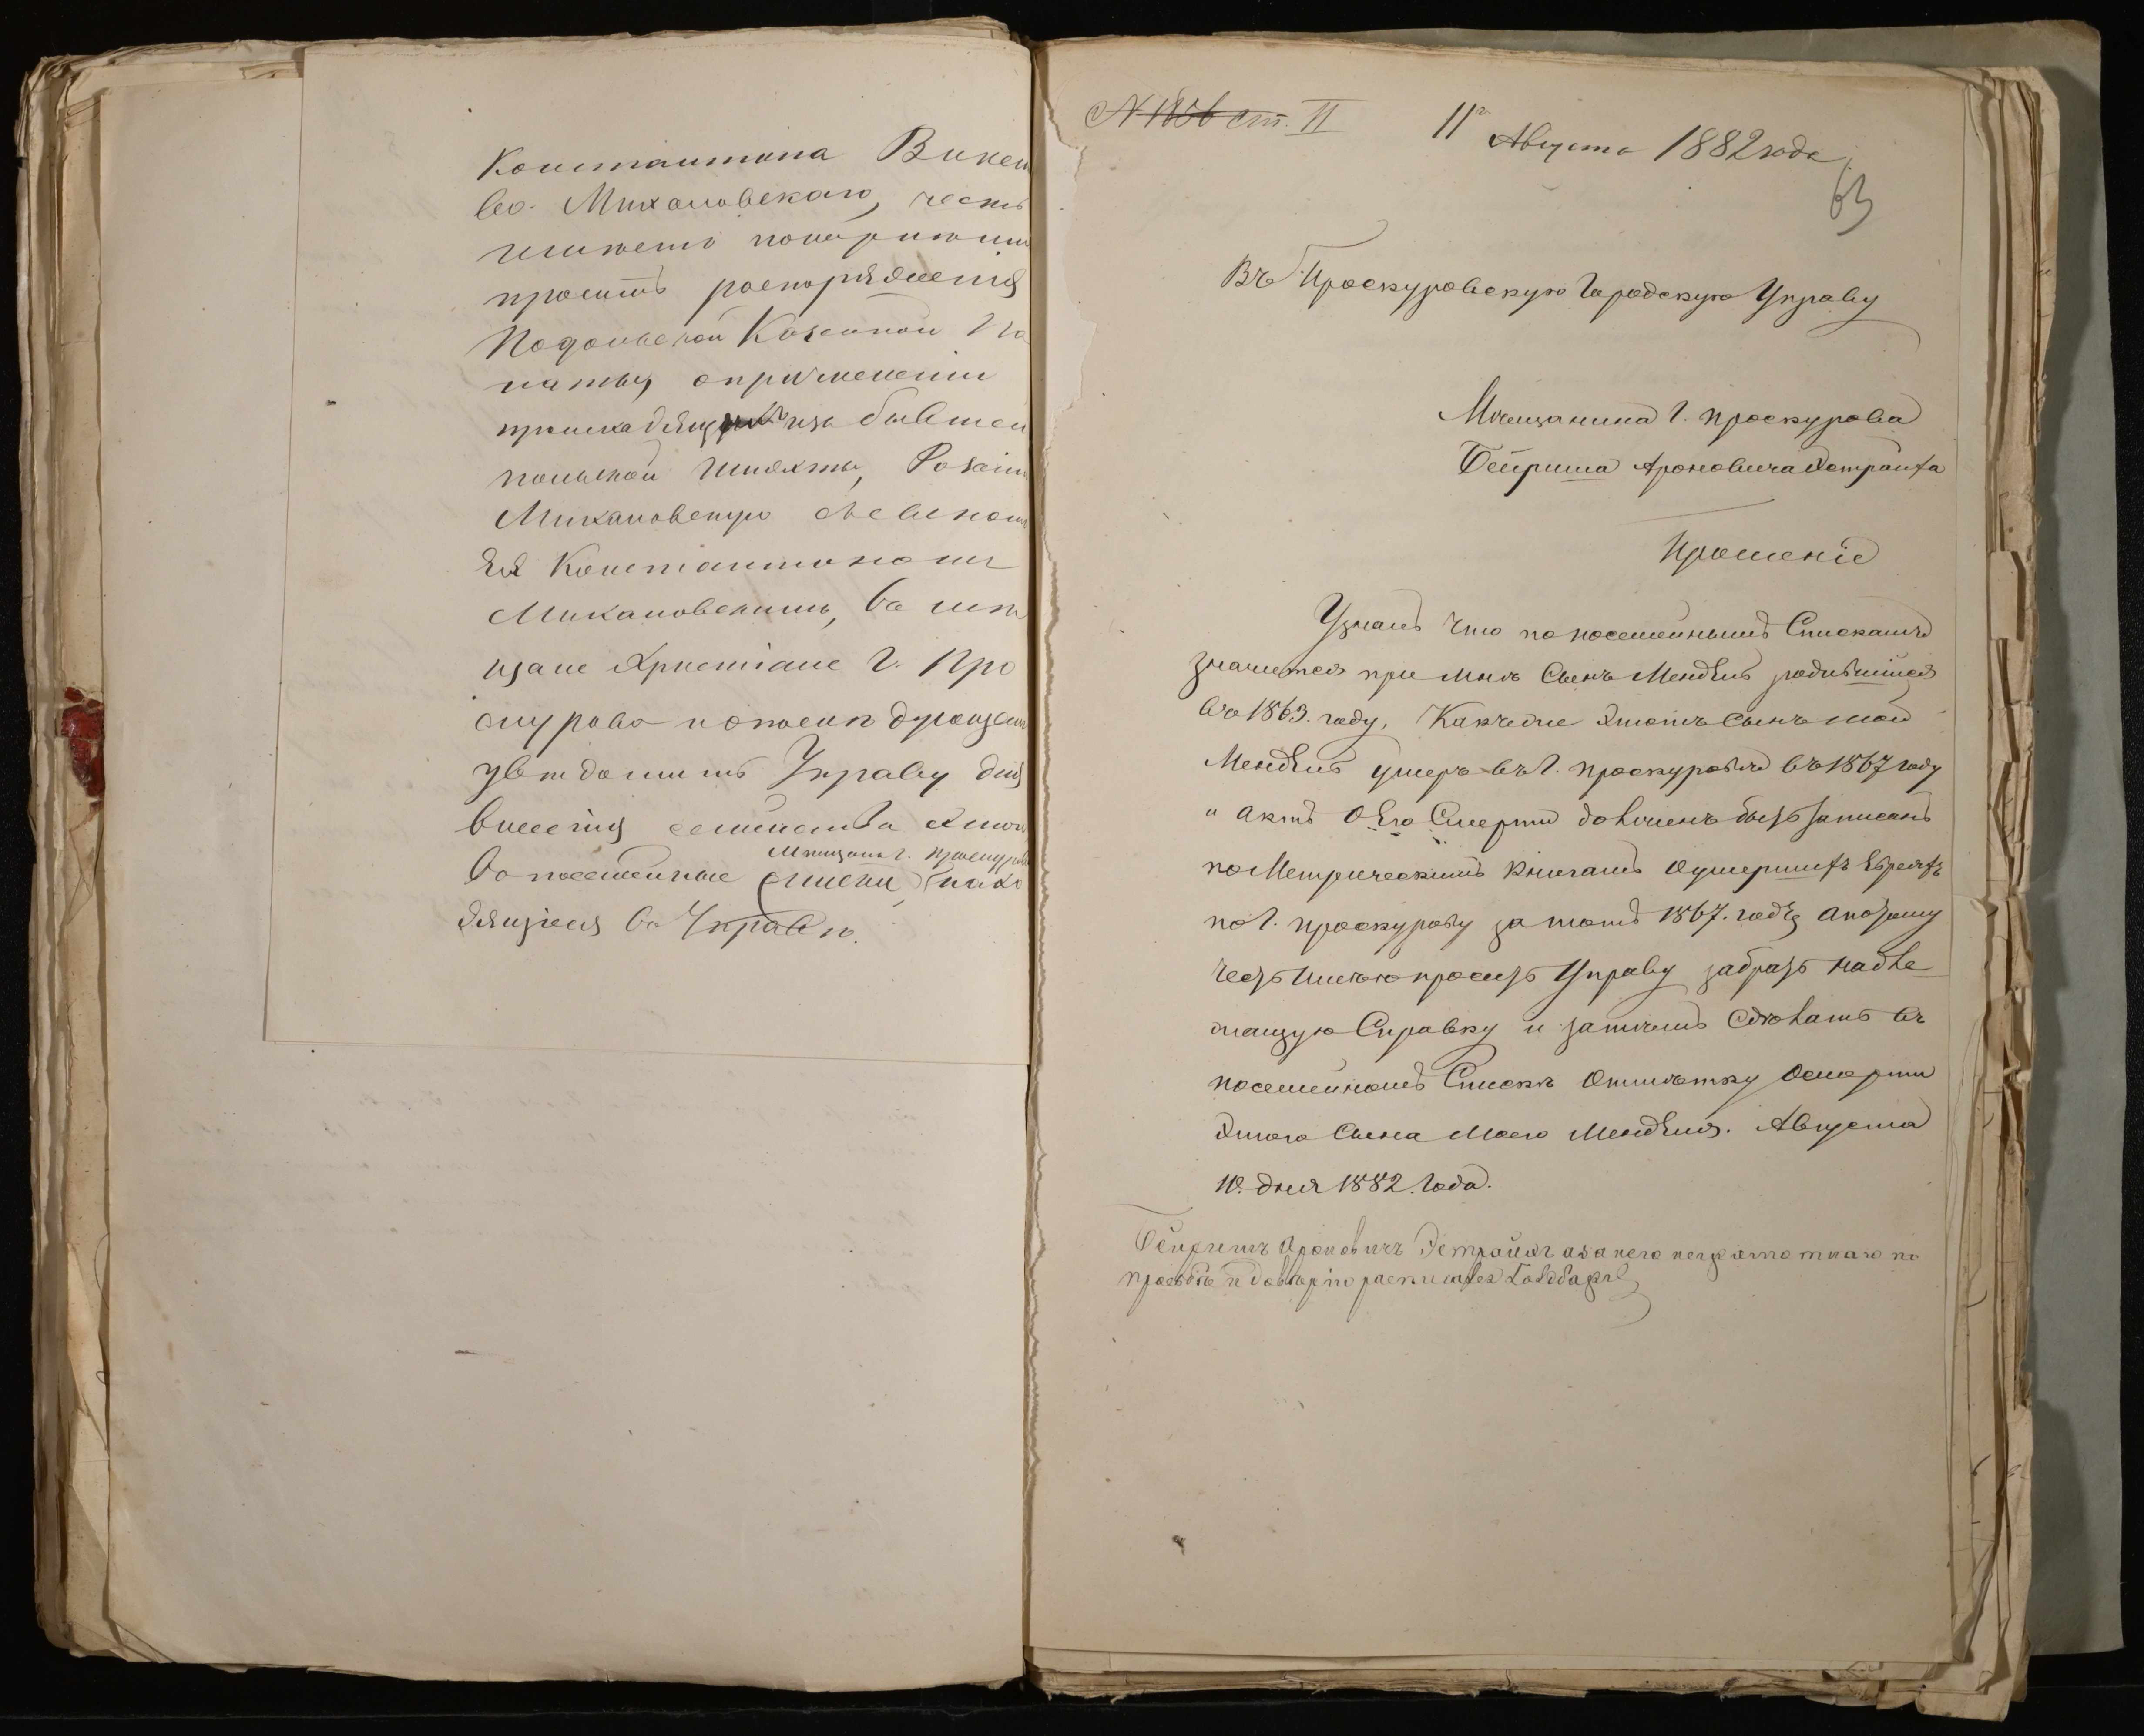 Константина Викен
ва. Михаловскаго, честь
имѣетъ покорнѣйше
просить распоряженія
Подольской Казенной Па
латы, о причисленіи
происходящ изъ бывшей
польской шляхты,
Михаловскую съ сыномъ
ея Константиномъ
Михаловскимъ, въ мѣ
щане Христіане г. Про
скурова и о послѣдующемъ
увѣдомить Управу для
внесенія семейства
Мѣщанъ г. Проскуров
въ посемейные списки, нахо
дящіеся въ Управѣ.
N 1856 ст. II
11го Августа 1882 года
63
Въ Проскуровскую Городскую Управу
Мѣщанина г. Проскурова
Бейриша Ароновича Эстрайха
Прошеніе
Узналъ что по посемейнымъ Спискамъ
значится при мнѣ Сынъ Мендель родившійся
въ 1863. году, Какъ же этотъ Сынъ мой
Мендель умеръ въ г. Проскуровѣ въ 1867 году
и актъ о Его Смерти долженъ быть записанъ
по Метрическимъ Книгамъ о умершихъ Евреяхъ
по г. Проскурову за тотъ 1867. годъ, а потому
честь имѣю просить Управу забрать надле
жащую Справку и затѣмъ Сдѣлать въ
посемейномъ Спискѣ Отмѣтку о смерти
этого Сына Моего Менделя. Августа
10. дня 1882. года.
Бейришъ Ароновичъ Эстрайхъ а за него неграмотнаго по
просьбѣ и довѣрію расписался